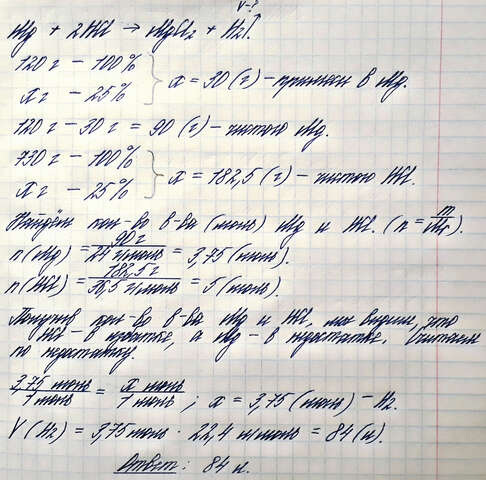 V-?
Mg + 2HCl → MgCl₂ + H₂↑.
120 г - 100%
x г - 25%
x = 30 (г) - примеси в Mg.
120 г - 30 г = 90 (г) - чистого Mg.
730 г - 100%
x г - 25%
x = 182,5 (г) - чистого HCl.
Найдём кол-во в-ва (моль) Mg и HCl. (n = m/Mr).
n(Mg) = 90 г / 24 г/моль = 3,75 (моль).
n(HCl) = 182,5 г / 36,5 г/моль = 5 (моль).
Получив кол-во в-ва Mg и HCl, мы видим, что
HCl - в избытке, а Mg - в недостатке. Считаем
по недостатку.
3,75 моль / 1 моль = x моль / 1 моль ; x = 3,75 (моль) - H₂.
V(H₂) = 3,75 моль · 22,4 л/моль = 84 (л).
Ответ: 84 л.